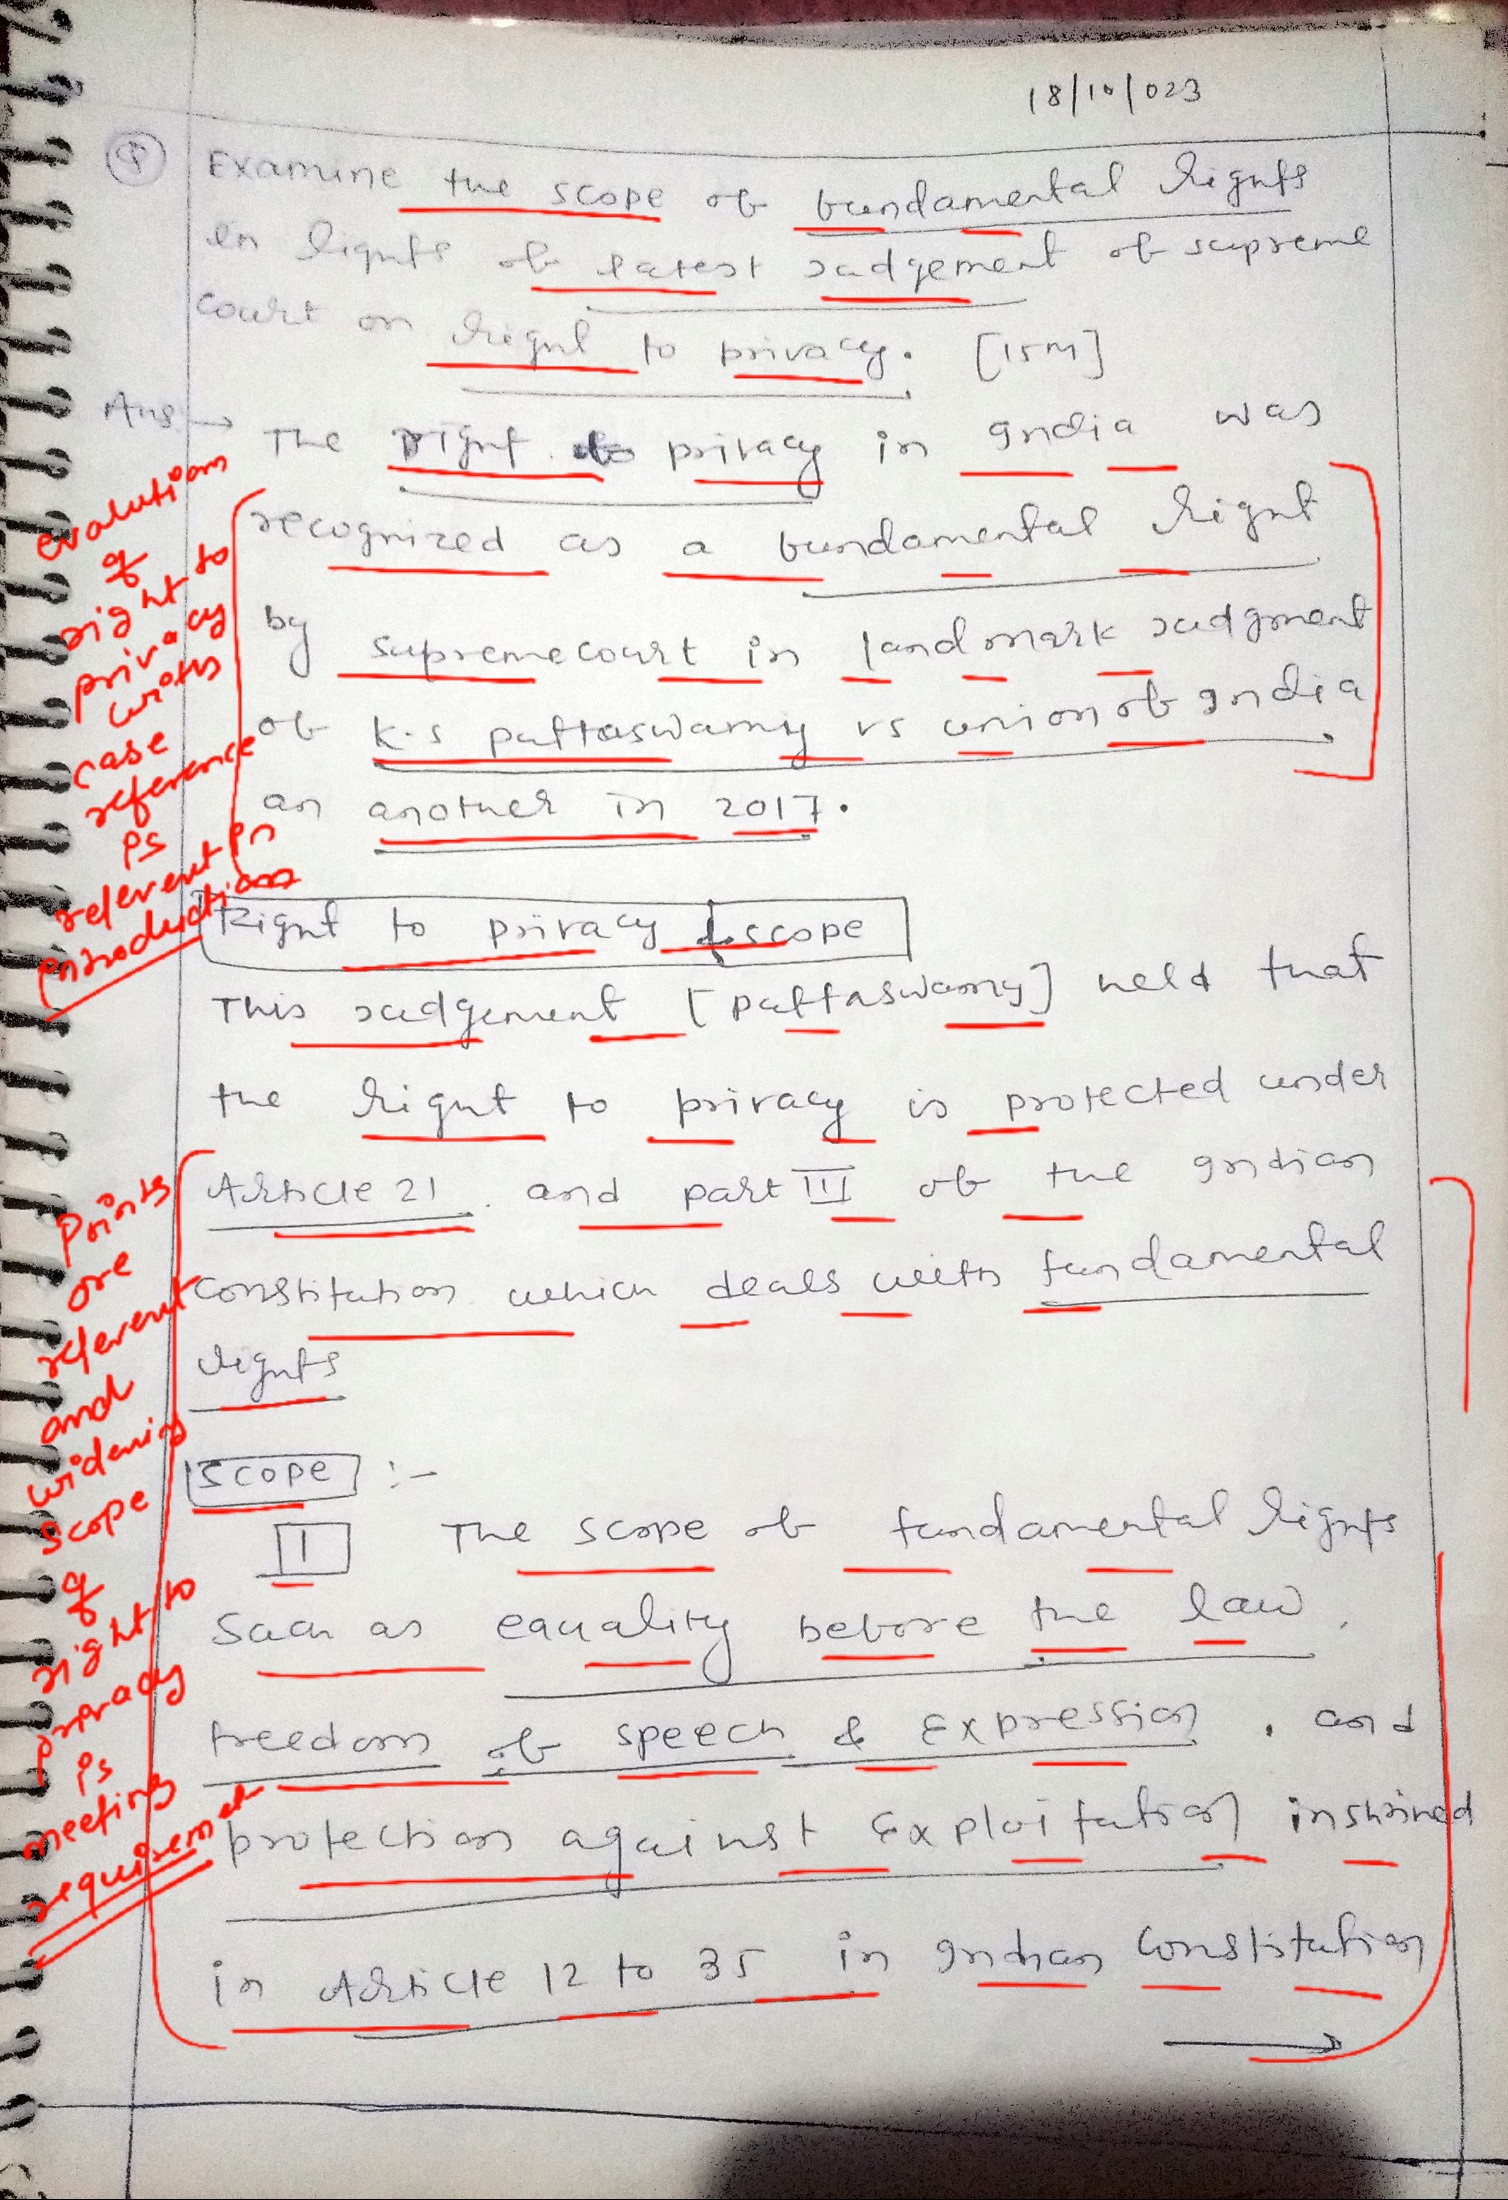 18/10/023
Q Examine the scope of fundamental Rights
in lights of latest Judgement of supreme
court on Right to privacy. [15M]
Ans → The right to privacy in India was
recognized as a fundamental Right
by supreme court in landmark Judgment
of K.S puttaswamy vs union of India
an another in 2017.
Right to privacy & scope
This Judgement [puttaswamy] held that
the Right to privacy is protected under
Article 21 and part III of the Indian
constitution which deals with fundamental
rights
Scope :-
1 The scope of fundamental Rights
Such as equality before the law,
freedom of speech & Expression, and
protection against Exploitation inshrined
in Article 12 to 35 in Indian Constitution
→
evalution
of
right to
privacy
with
case
reference
is
relevent in
introduction
Points
are
relevent
and
widening
scope
of
right to
privacy
is
meeting
requirement